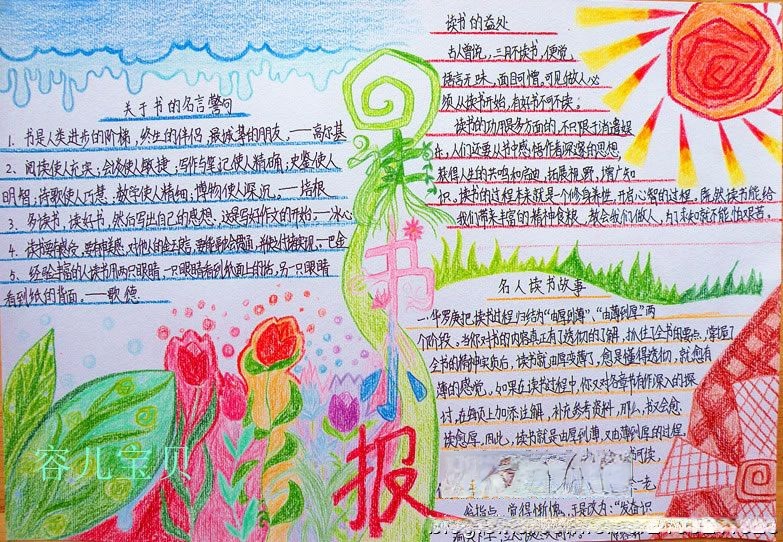 关于书的名言警句
1、书是人类进步的阶梯，终生的伴侣，最诚挚的朋友。——高尔基
2、阅读使人充实；会谈使人敏捷；写作与笔记使人精确；史鉴使人
明智；诗歌使人巧慧；数学使人精细；博物使人深沉。——培根
3、多读书，读好书，然后写出自己的感想，这是写好作文的开始。——冰心
4、读书
5、经验丰富的人读书用两只眼睛，一只眼睛看到纸面上的话，另一只眼睛
看到纸的背面。——歌德
读书小报
读书的益处
古人曾说，三日不读书，便觉
语言无味，面目可憎。可见做人必
须从读书开始，有好书不可不读。
读书的功用是多方面的，不只限于消遣娱
乐，人们还要从书中感悟作者深邃的思想，
获得人生的共鸣和启迪，拓展视野，增广知
识。读书的过程本来就是一个修身养性，开启心智的过程。既然读书能给
我们带来丰富的精神食粮，教会我们做人，为了求知就不能怕艰苦。
名人读书故事
一、华罗庚把读书过程归结为“由厚到薄”、“由薄到厚”两
个阶段。当你对书的内容真正有了透彻的了解，抓住了全书的要点，掌握了
全书的精神实质后，读书就由厚变薄了，愈是懂得透彻，就愈有
薄的感觉。如果在读书过程中，你又对各章节作深入的探
讨，在每页上加添注解，补充参考资料，那么，书又会愈
读愈厚。因此，读书就是由厚到薄，又由薄到厚的过程。
一老
指点，觉得惭愧，于是改为：“发奋识
容儿宝贝